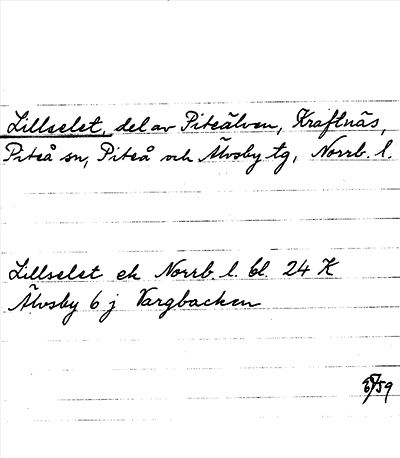 Lillselet, del av Piteälven, Kraftnäs,
Piteå sn, Piteå och Älvsby tg, Norrb. l.
Lillselet ek Norrb. l. bl. 24 K
Älvsby 6 j Vargbacken